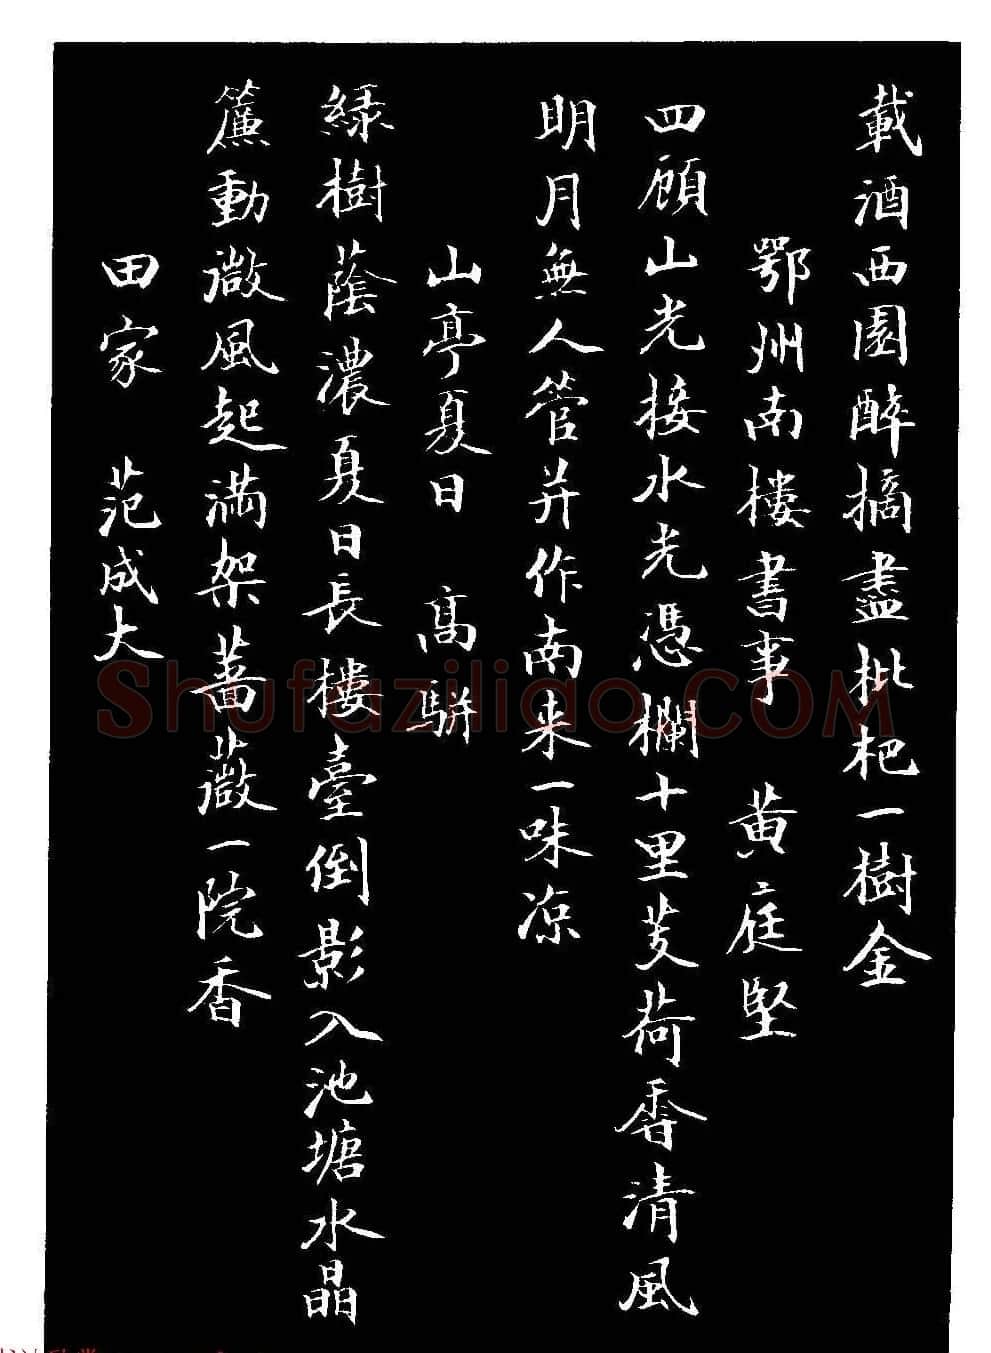 載酒西園醉摘盡枇杷一樹金
鄂州南樓書事 黄庭堅
四顧山光接水光憑欄十里芰荷香清風
明月無人管并作南来一味凉
山亭夏日 髙駢
緑樹蔭濃夏日長樓臺倒影入池塘水晶
簾動微風起満架薔薇一院香
田家 范成大
Shufaziliao.COM